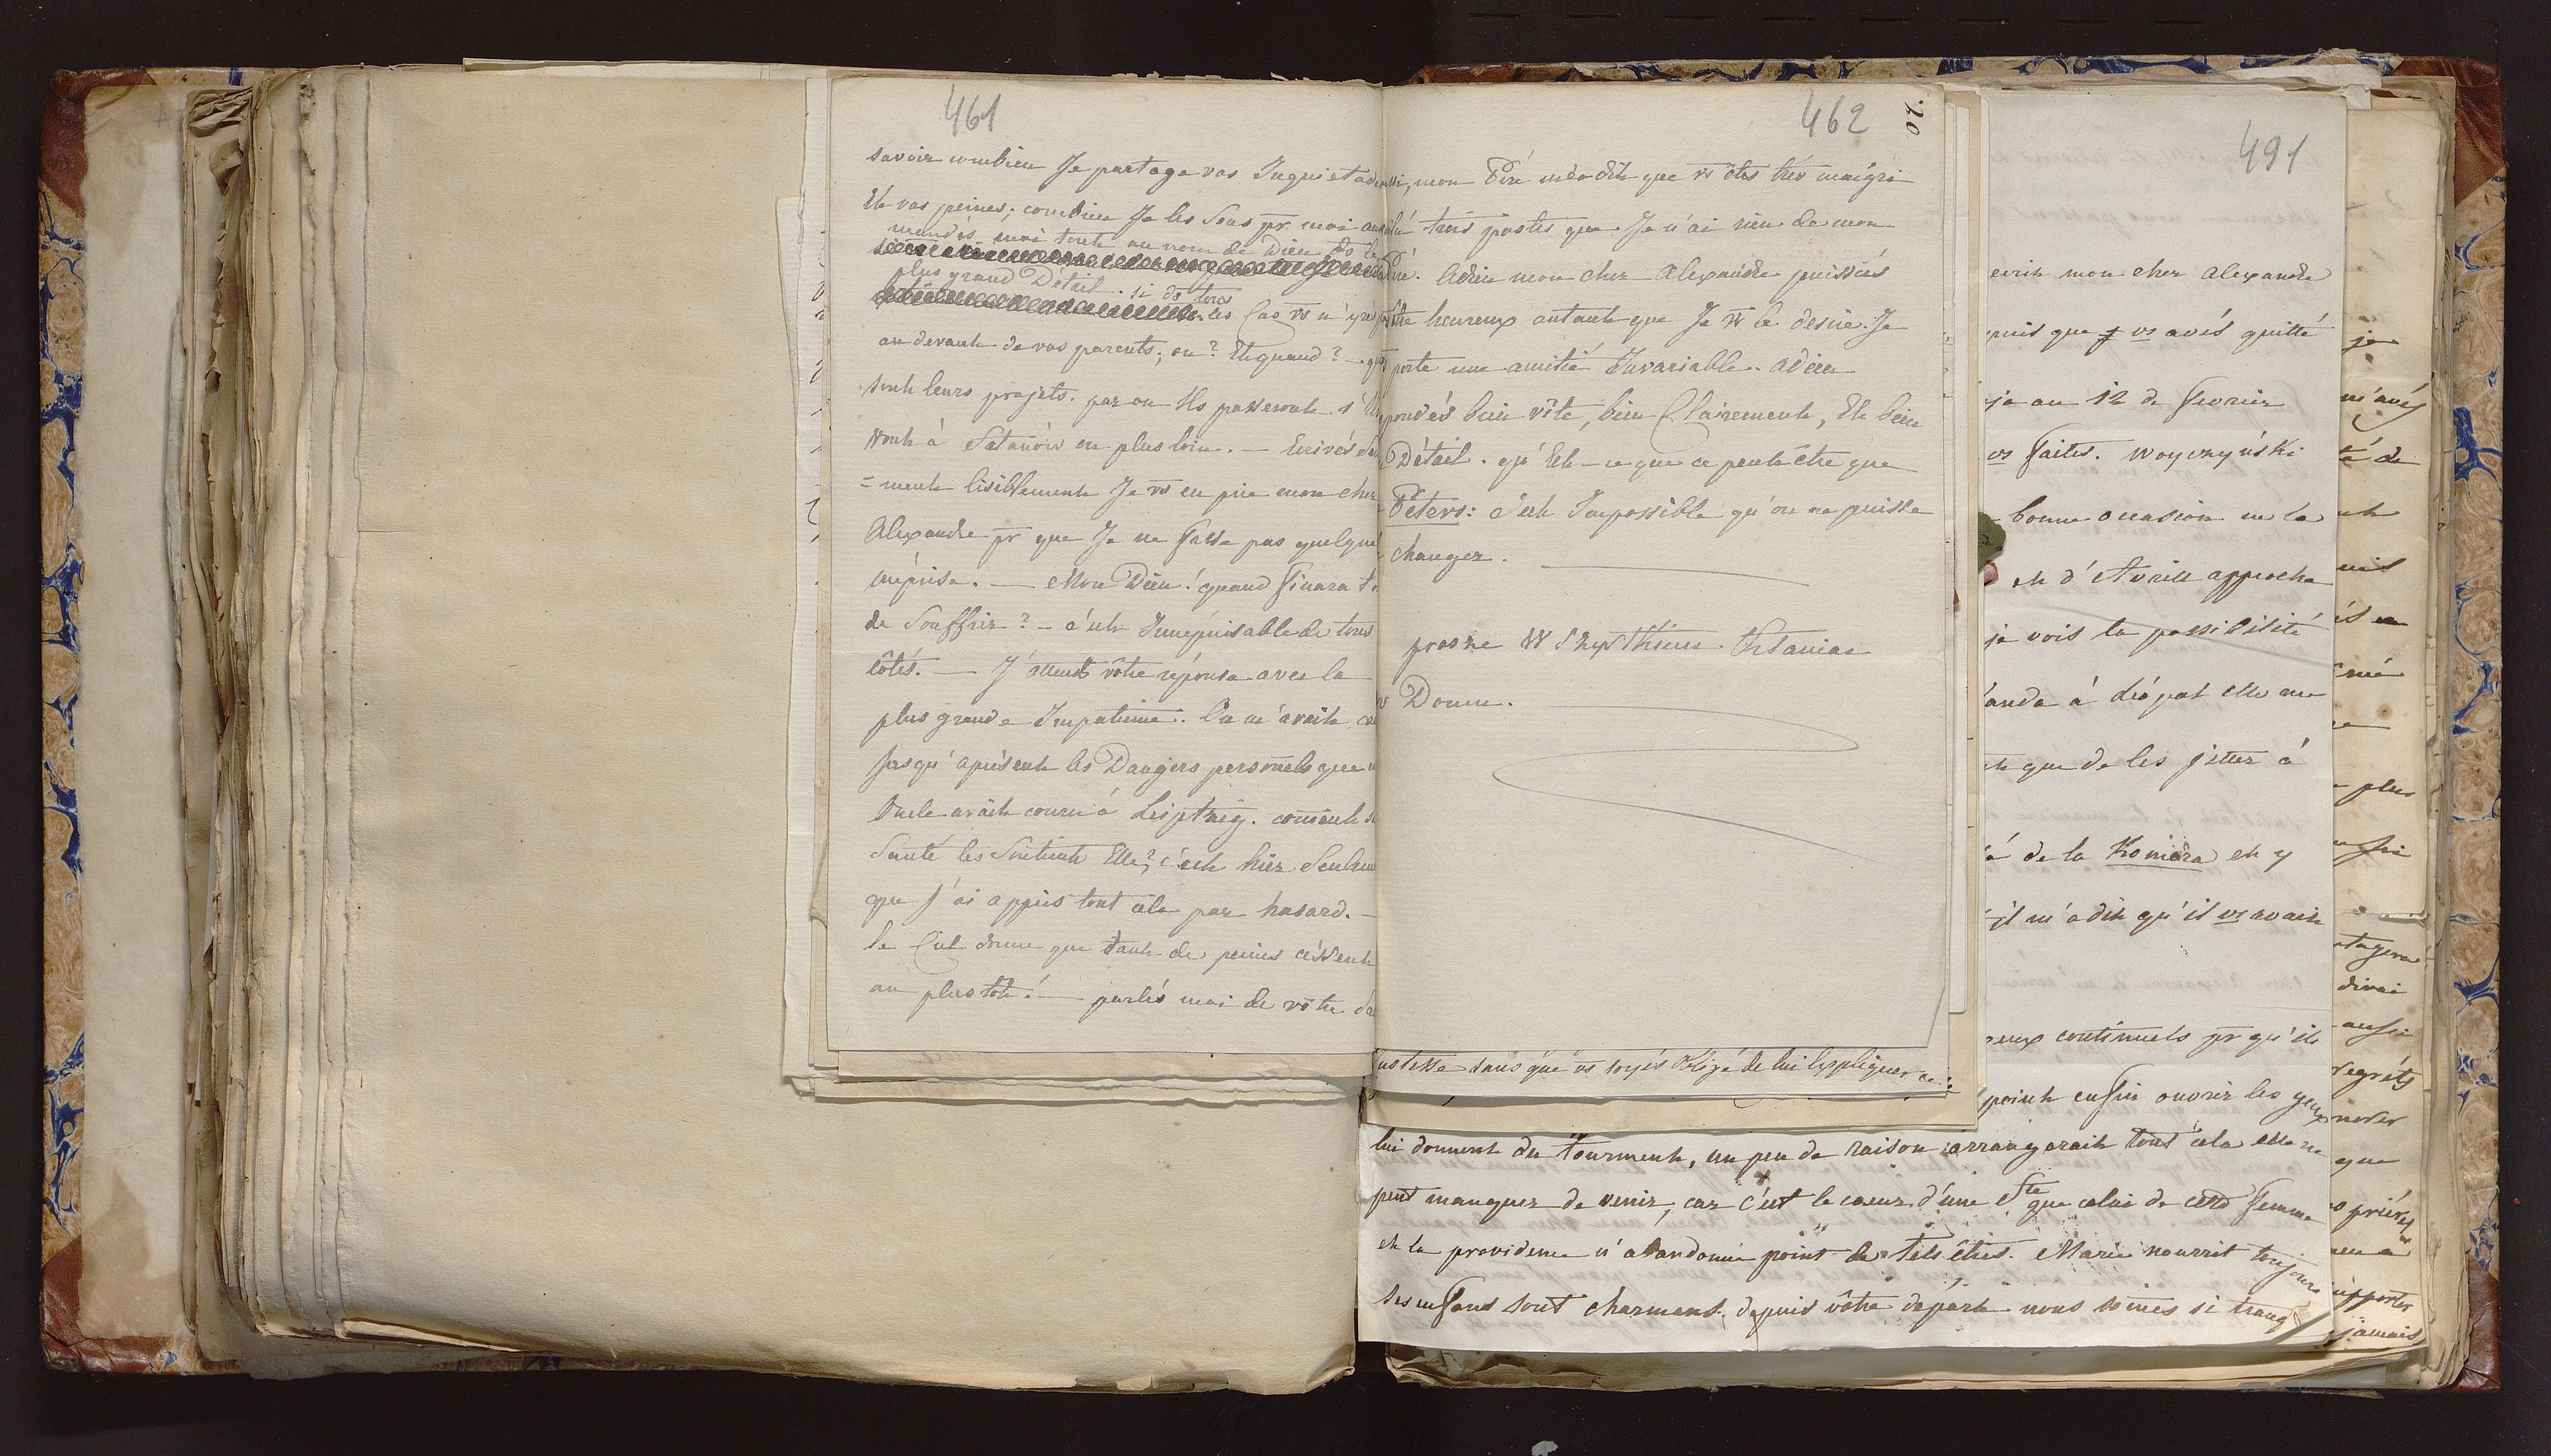 461
savoir combien Je partage vos Inquietud
Et vos peines; combien Je les Sens pr moi
mandés moi tout au nom de Dieu ds le
plus grand Détail. si ds tous
les Cas vs n'irés
au devant de vos parents; ou? Et quand? —
sont leurs projets. par ou Ils passeront s'
vont à Satanów ou plus loin. — Ecrivés
=ment lisiblement Je vs en prie mon cher
Alexandre pr que Je ne fasse pas quelque
méprise. — Mon Dieu! quand finira t.
de Souffrir? — c'est Innépuisable de tous
côtés. — J'attends vôtre réponse avec la
plus grande Impatience. On m'avait
Jusqu'aprésent les Dangers personels que
Oncle avait couru à Leiptzig. coment
Santé les Soutient Elle? c'est hier Seulem
que J'ai appris tout cela par hasard. —
le Ciel donne que tant de peines cèssent
au plus tôt! — parlés moi de vôtre
462
20
mon Péré m'a dit que vs êtes très maigri
trois postes que Je n'ai rien de mon
Adieu mon cher Alexandre puissiés
être heureux autant que Je vs le desire. Je
porte une amitié Invariable. adieu
pondés bien vîte, bien Clairement, Et bien
Détail. qu'Est-ce que ce peut être que
Péters: c'est Impossible qu'on ne puisse
changer.
proszę
Donne.
ustesse sans que vs soyés obligé de lui Expliquer
lui donnent du tourment, un peu de raison arrangerait tout cela elle ne
peut manquer de venir, car c'est le coeur d'une Ste que celui de cette femme
et la providence n'abandonne point de tels êtres. Marie nourrit toujours
ses enfans sont charmens. depuis vôtre départ nous somes si tranq
491
ecrit mon cher Alexandre
puis que vs avés quitté
ja au 12 de fevrier
vs faites. Woyczyński
bonne occasion ne la
et d'Avrill approche
je vois la possibilité
anda à dépot elle me
que de les jetter à
é de la Komora et y
il m'a dit qu'il vs avait
eux continuels pr qu'il
point enfin ouvrir les yeux
je
m'avés
té de
plus
tagera
dirai
aussi
regréts
que
prières
pporter
jamais